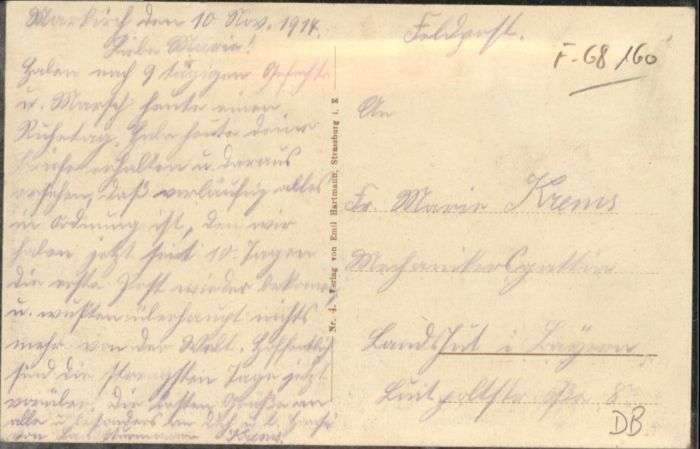 Markirch den 10 Nov. 1914.
Liebe Marie!
Haben nach 9 tägigen Gefecht
u. Marsch heute einen
Ruhetag. Habe heute deine
erhalten u. daraus
ersehen, daß vorläufig alles
in Ordnung ist, den wir
haben jetzt seit 10 Tagen
die erste Post wieder bekom
u. wußten überhaupt nichts
mehr von der Welt. Hoffentlich
sind die Tage jetzt
vorüber. Die besten Grüße an
alle u. besonders an Dich u. l.
von Krems.
Nr. 4. Verlag von Emil Hartmann, Strassburg i. E
Feldpost.
F-68/60
An
Fr. Marie Krems
Mechanikersgattin
Landshut i Bayern
Luitpoldstr 8
DB